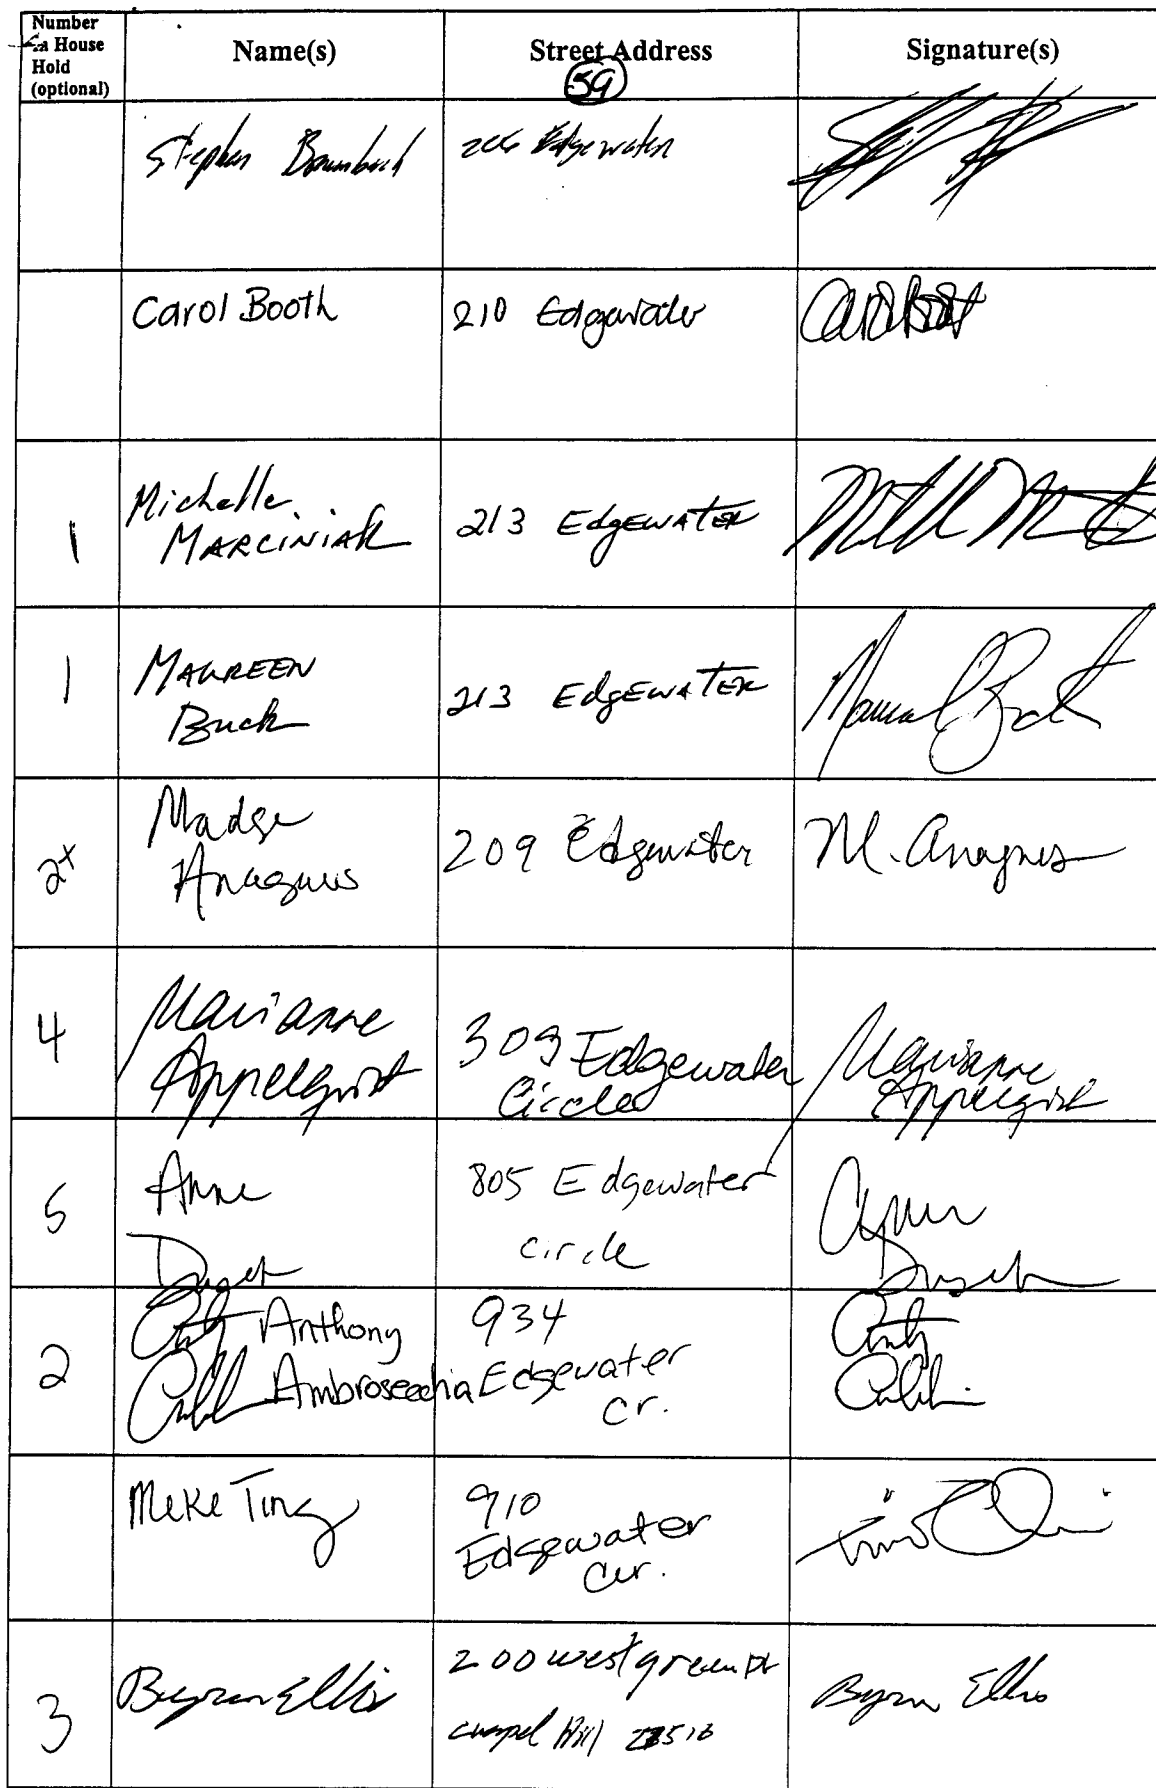 Number
in House
Hold
(optional)
Name(s)
Street Address
Signature(s)
59
Stephen Baumbach
206 Edgewater
Carol Booth
210 Edgewater
Carol Booth
1
Michelle
MARCINIAK
213 EdgEWATER
1
MAUREEN
Buck
213 EdgEWATER
2+
Madge
Anagnos
209 Edgewater
M. Anagnos
4
Marianne
Appelqvist
309 Edgewater
Circle
Marianne
Appelqvist
5
Anne
805 Edgewater
circle
2
Anthony
Ambrosecchia
934
Edgewater
Cr.
Meke Ting
910
Edgewater
Cir.
3
Byron Ellis
200 westgreen Pl
chapel Hill
Byron Ellis